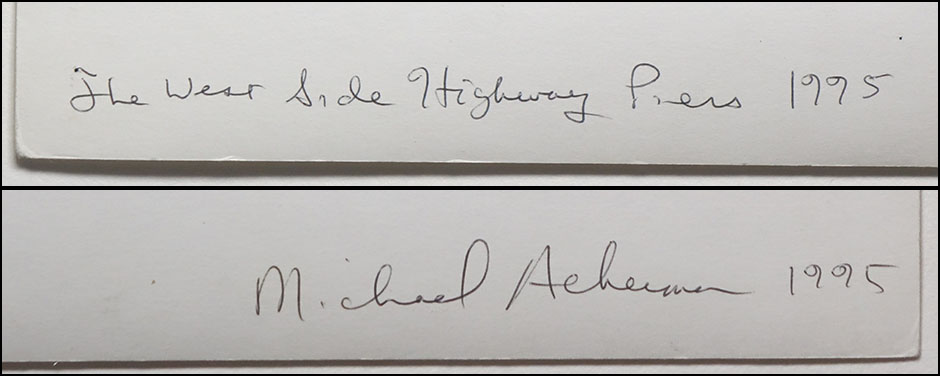 The West Side Highway Piers 1995
Michael Ackerman 1995